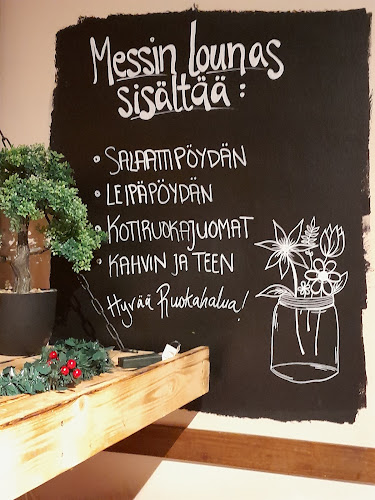 Messin lounas
sisältää:
• SALAATTIPÖYDÄN
• LEIPÄPÖYDÄN
• KOTIRUOKAJUOMAT
• KAHVIN JA TEEN
Hyvää Ruokahalua!